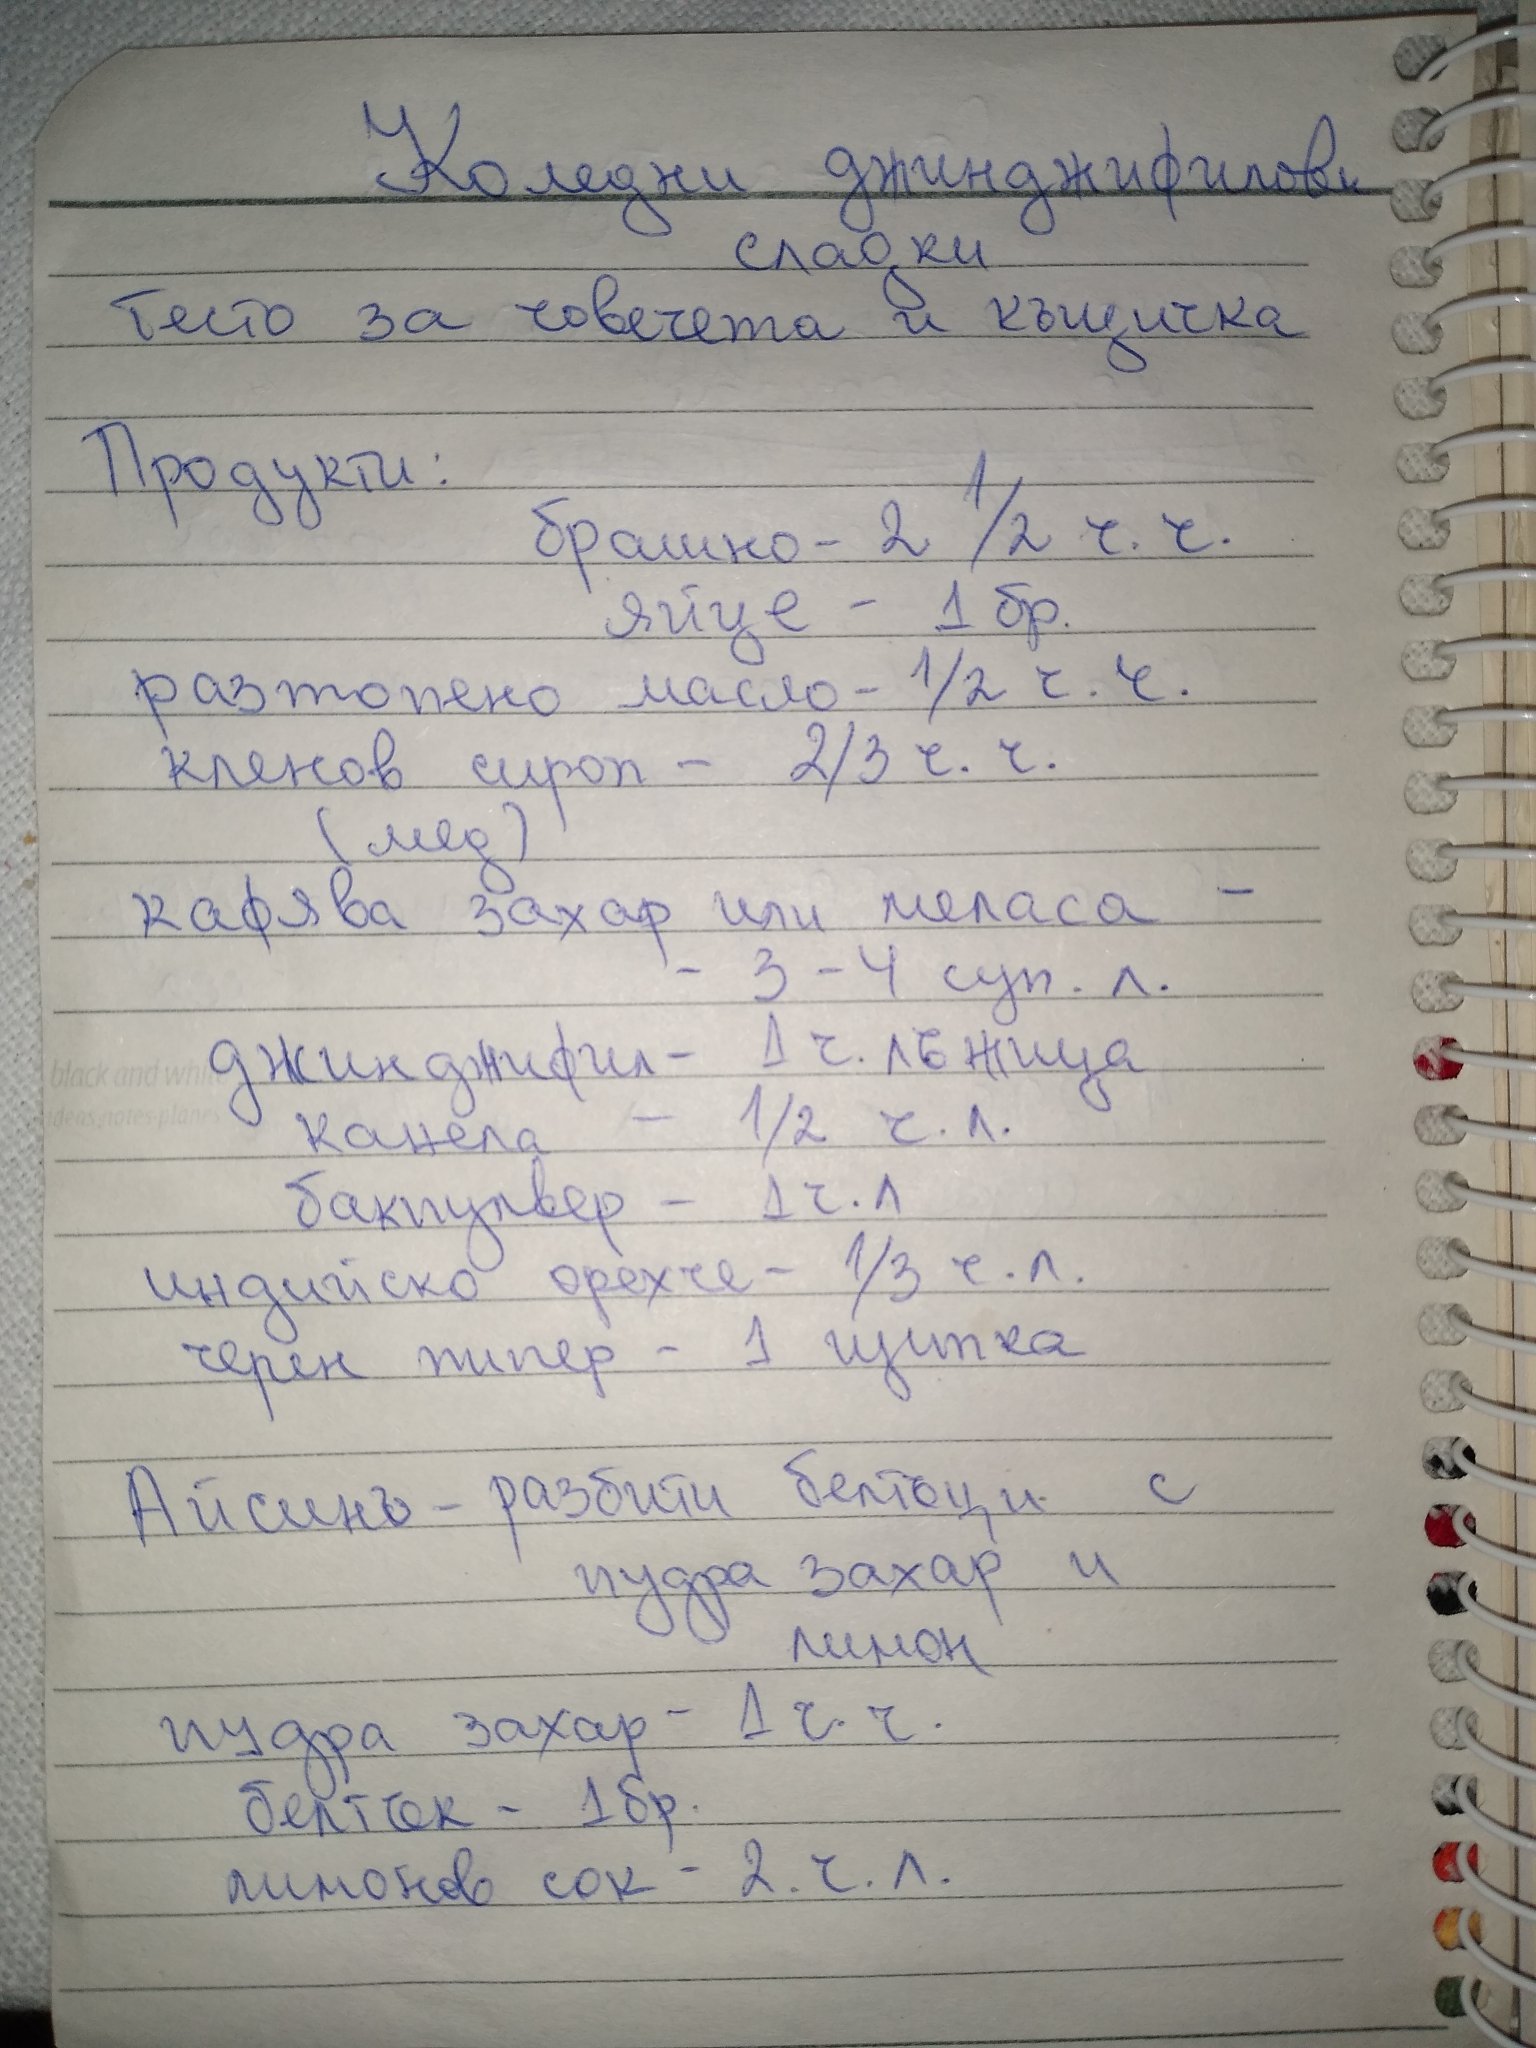 Коледни джинджифилови
сладки
Тесто за човечета и къщичка
Продукти:
брашно - 2 1/2 ч.ч.
яйце - 1 бр.
разтопено масло - 1/2 ч.ч.
кленов сироп - 2/3 ч.ч.
(мед)
кафява захар или меласа -
- 3 - 4 суп. л.
джинджифил - 1 ч. лъжица
black and white
ideas, notes, plans
канела - 1/2 ч.л.
бакпулвер - 1 ч.л
индийско орехче - 1/3 ч.л.
черен пипер - 1 щипка
Айсинъ - разбити белтъци с
пудра захар и
лимон
пудра захар - 1 ч.ч.
белтък - 1 бр.
лимонов сок - 2.ч.л.